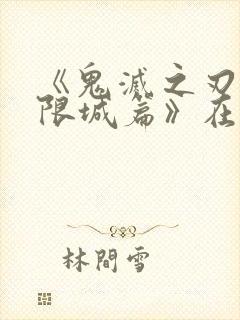 《鬼滅之刃
限城篇》在
林間雪